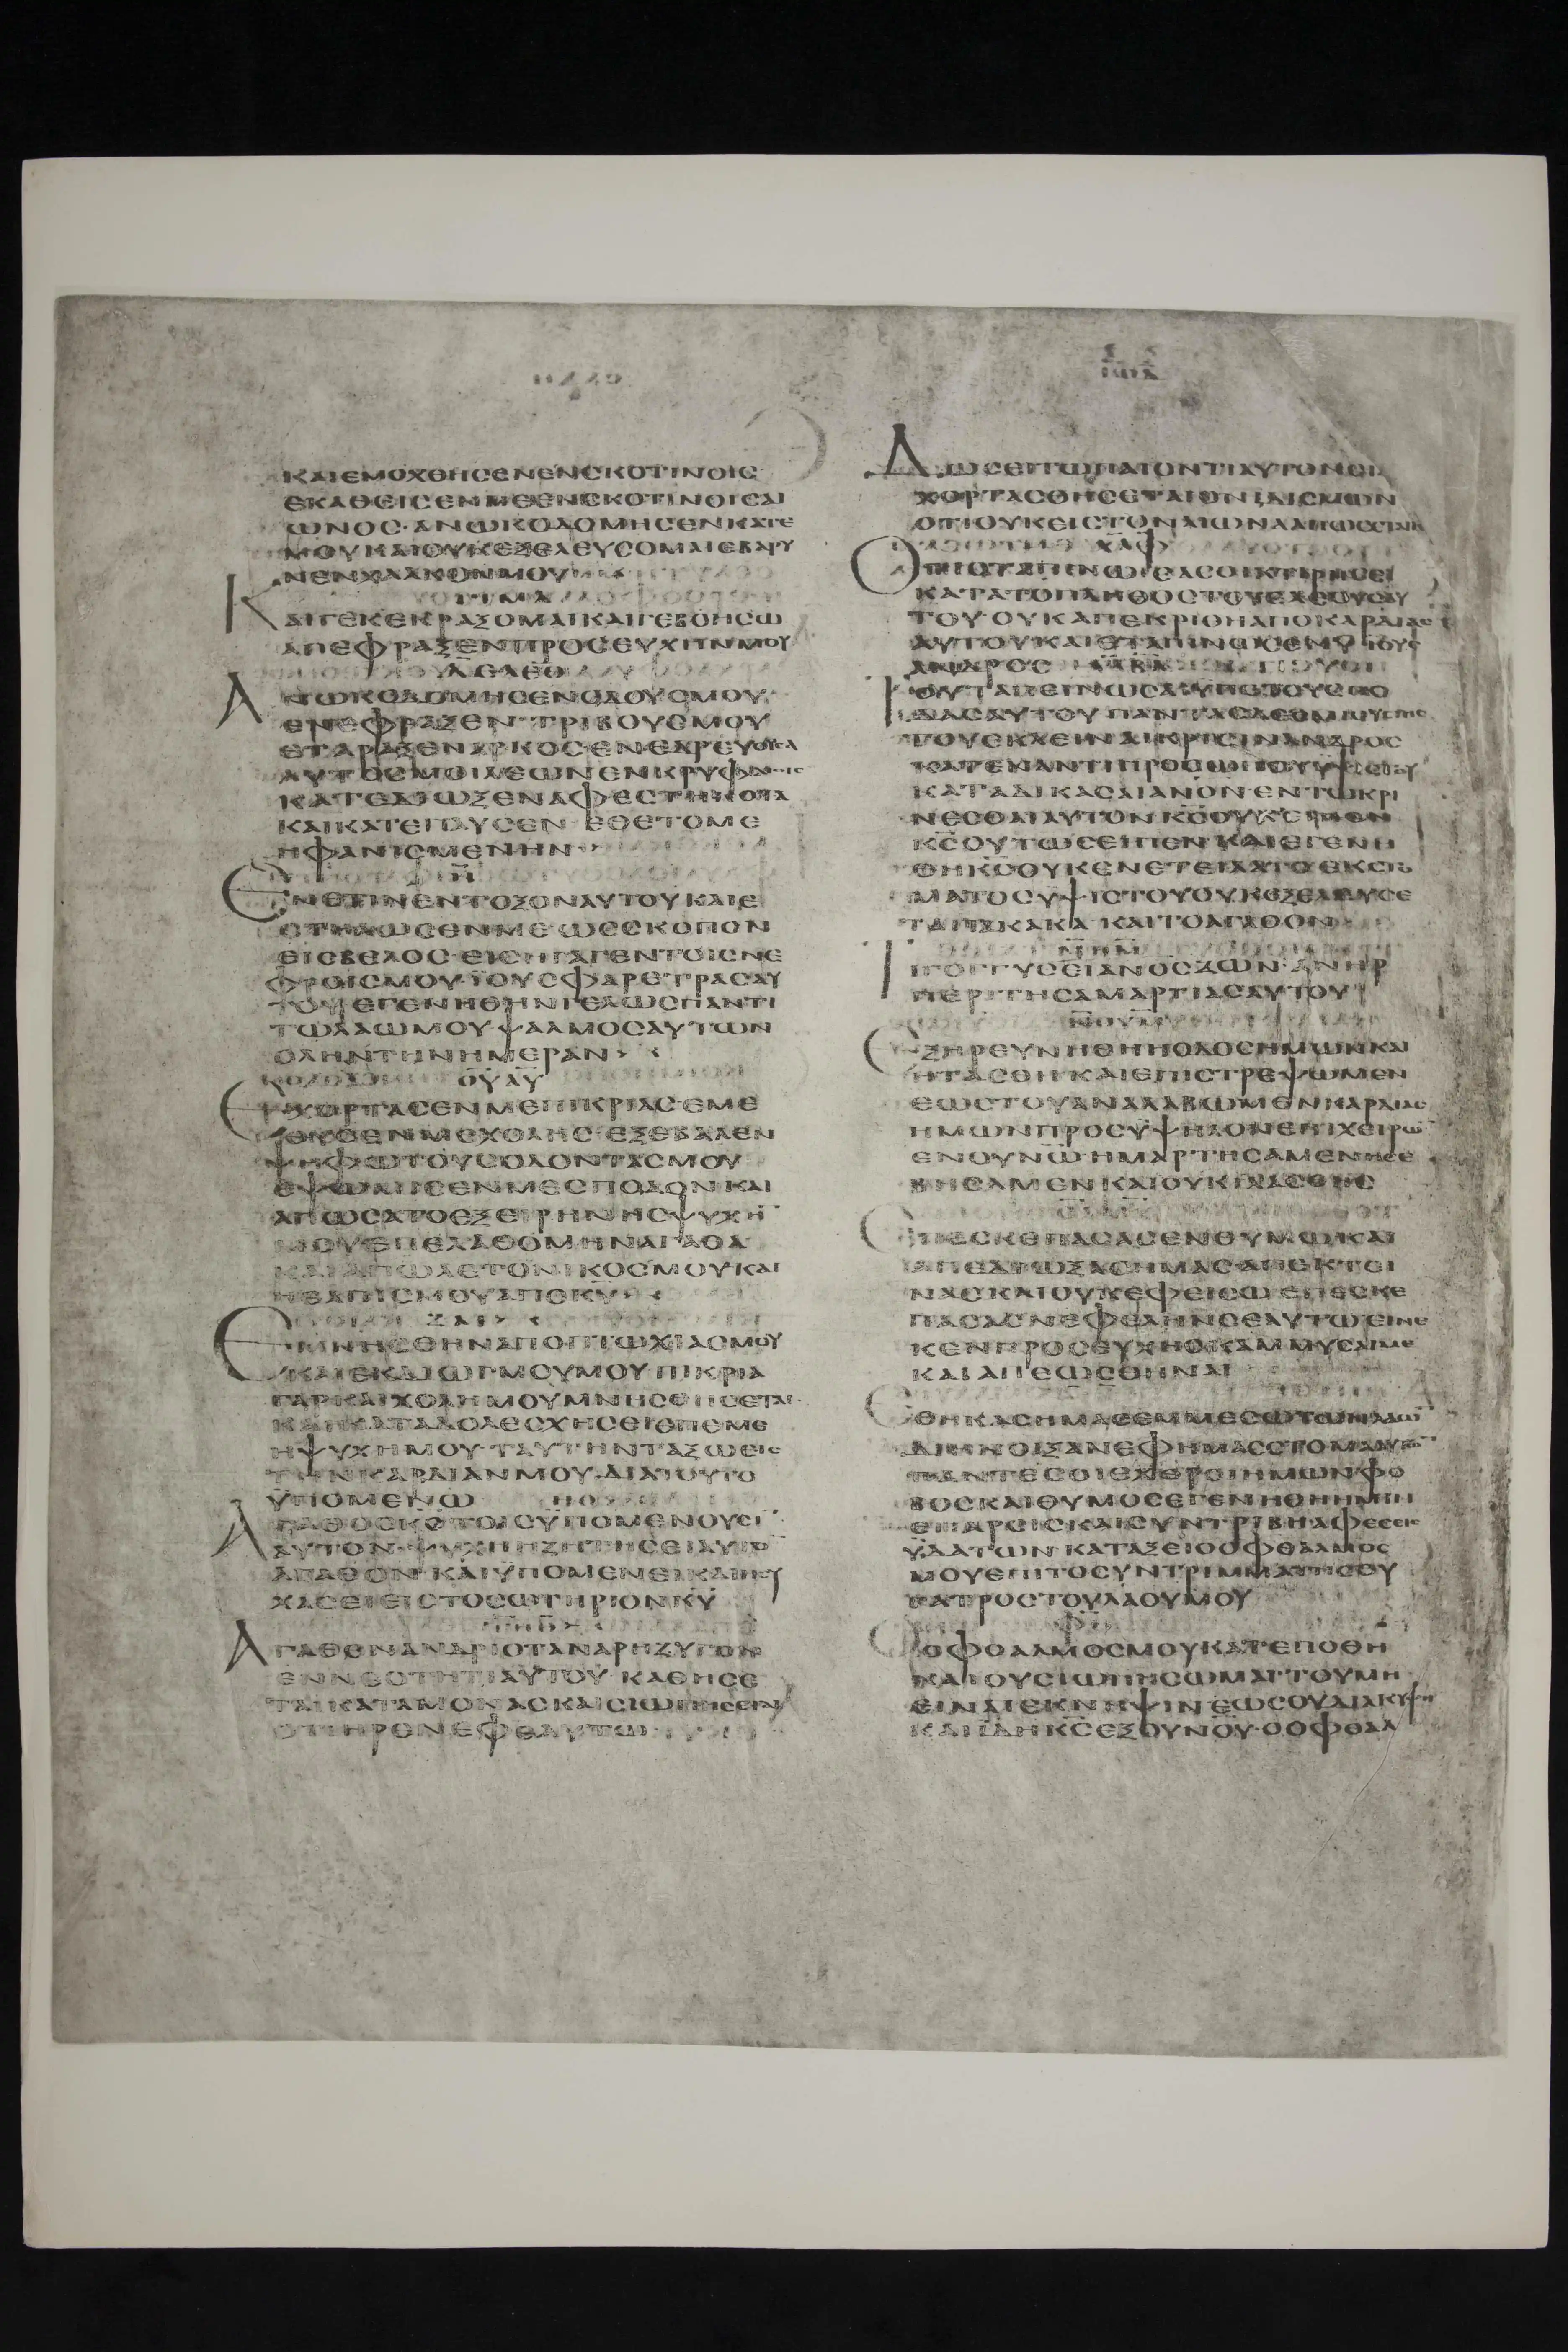 ΚΑΙΕΜΟΧΘΗCΕΝΕΝCΚΟΤΙΝΟΙC
ΕΚΑΘΕΙCΕΝΜΕΕΝCΚΟΤΙΝΟΙCΑΙ
ΩΝΟC·ΑΝΩΚΟΔΟΜΗCΕΝΚΑΤΕ
ΜΟΥΚΑΙΟΥΚΕΞΕΛΕΥCΟΜΑΙΕΒΑΡΥ
ΝΕΝΧΑΛΚΟΝΜΟΥ
ΓΙΜΛ
ΚΑΙΓΕΚΕΚΡΑΞΟΜΑΙΚΑΙΓΕΒΟΗCΩ
ΑΠΕΦΡΑΞΕΝΠΡΟCΕΥΧΗΝΜΟΥ
ΑΝΩΚΟΔΟΜΗCΕΝΟΔΟΥCΜΟΥ
ΕΝΕΦΡΑΞΕΝΤΡΙΒΟΥCΜΟΥ
ΕΤΑΡΑΞΕΝΑΡΚΟCΕΝΕΔΡΕΥΟΥCΑ
ΑΥΤΟCΜΟΙΛΕΩΝΕΝΚΡΥΦΑΙΟΙC
ΚΑΤΕΔΙΩΞΕΝΑΦΕCΤΗΚΟΤΑ
ΚΑΙΚΑΤΕΠΑΥCΕΝ ΕΘΕΤΟΜΕ
ΗΦΑΝΙCΜΕΝΗΝ
Η
ΕΝΕΤΙΝΕΝΤΟΞΟΝΑΥΤΟΥΚΑΙΕ
CΤΗΛΩCΕΝΜΕΩCCΚΟΠΟΝ
ΕΙCΒΕΛΟC·ΕΙCΗΓΑΓΕΝΤΟΙCΝΕ
ΦΡΟΙCΜΟΥ·ΙΟΥCΦΑΡΕΤΡΑCΑΥ
ΤΟΥΕΓΕΝΗΘΗΝΓΕΛΩCΠΑΝΤΙ
ΤΩΛΑΩΜΟΥΨΑΛΜΟCΑΥΤΩΝ
ΟΛΗΝΤΗΝΗΜΕΡΑΝ
ΟΥΑΥ
ΕΧΟΡΤΑCΕΝΜΕΠΙΚΡΙΑCΕΜΕ
ΘΥCΕΝΜΕΧΟΛΗC·ΕΞΕΒΑΛΕΝ
ΨΗΦΩΤΟΥCΟΔΟΝΤΑCΜΟΥ
ΕΨΩΜΙCΕΝΜΕCΠΟΔΟΝΚΑΙ
ΑΠΩCΑΤΟΕΞΕΙΡΗΝΗCΨΥΧΗ
ΜΟΥΕΠΕΛΑΘΟΜΗΝΑΓΑΘΑ
ΚΑΙΑΠΩΛΕΤΟΝΙΚΟCΜΟΥΚΑΙ
ΗΕΛΠΙCΜΟΥΑΠΟΚΥ
ΖΑΙ
ΕΜΝΗCΘΗΝΑΠΟΠΤΩΧΙΑCΜΟΥ
ΚΑΙΕΚΔΙΩΓΜΟΥΜΟΥΠΙΚΡΙΑ
ΓΑΡΚΑΙΧΟΛΗΜΟΥΜΝΗCΘΗCΕΤΑΙ
ΚΑΙΚΑΤΑΔΟΛΕCΧΗCΕΙΕΠΕΜΕ
ΗΨΥΧΗΜΟΥ·ΤΑΥΤΗΝΤΑΞΩΕΙC
ΤΗΝΚΑΡΔΙΑΝΜΟΥ·ΔΙΑΤΟΥΤΟ
ΥΠΟΜΕΝΩ
ΑΓΑΘΟCΚCΤΟΙCΥΠΟΜΕΝΟΥCΙ
ΑΥΤΟΝ·ΨΥΧΗΗΖΗΤΗCΕΙΑΥΤΟ
ΑΓΑΘΟΝ·ΚΑΙΥΠΟΜΕΝΕΙΚΑΙΗCΥ
ΧΑCΕΙΕΙCΤΟCΩΤΗΡΙΟΝΚΥ
ΤΗΘ
ΑΓΑΘΟΝΑΝΔΡΙΟΤΑΝΑΡΗΖΥΓΟΝ
ΕΝΝΕΟΤΗΤΙΑΥΤΟΥ·ΚΑΘΗCΕ
ΤΑΙΚΑΤΑΜΟΝΑCΚΑΙCΙΩΠΗCΕΤΑΙ
ΟΤΙΗΡΕΝΕΦΕΑΥΤΩ
ΔΩCΕΙΤΩΠΑΙΟΝΤΙΑΥΤΟΝCΙ
ΧΟΡΤΑCΘΗCΕΤΑΙΟΝΙΔΙCΜΩΝ
ΟΤΙΟΥΚΕΙCΤΟΝΑΙΩΝΑΑΠΩCΕΤΑΙΚC
ΧΑΦ
ΟΤΙΟΤΑΠΙΝΩCΑCΟΙΚΤΙΡΗCΕΙ
ΚΑΤΑΤΟΠΛΗΘΟCΤΟΥΕΛΕΟΥCΑΥ
ΤΟΥ·ΟΥΚΑΠΕΚΡΙΘΗΑΠΟΚΑΡΔΙΑC
ΑΥΤΟΥΚΑΙΕΤΑΠΙΝΩCΕΝΥΙΟΥC
ΑΝΔΡΟC
ΤΟΥΤΑΠΕΙΝΩCΑΙΥΠΟΤΟΥCΠΟ
ΔΑCΑΥΤΟΥΠΑΝΤΑCΔΕCΜΙΟΥCΓΗC
ΤΟΥΕΚΚΛΕΙΝΑΙΚΡΙCΙΝΑΝΔΡΟC
ΚΑΤΕΝΑΝΤΙΠΡΟCΩΠΟΥΥΨΙCΤΟΥ
ΚΑΤΑΔΙΚΑCΑΙΑΝΟΝ·ΕΝΤΩΚΡΙ
ΝΕCΘΑΙΑΥΤΟΝΚCΟΥΚΕΙΠΕΝ
ΚCΟΥΤΩCΕΙΠΕΝΚΑΙΕΓΕΝΗ
ΘΗΚCΟΥΚΕΝΕΤΕΙΛΑΤΟΕΚCΤΟ
ΜΑΤΟCΥΨΙCΤΟΥΟΥΚΕΞΕΛΕΥCΕ
ΤΑΙΤΑΚΑΚΑ·ΚΑΙΤΟΑΓΑΘΟΝ
ΜΗΜ
ΤΙΓΟΓΓΥCΕΙΑΝΟCΖΩΝ·ΑΝΗΡ
ΠΕΡΙΤΗCΑΜΑΡΤΙΑCΑΥΤΟΥ
ΝΟΥΝ
ΕΞΗΡΕΥΝΗΘΗΗΟΔΟCΗΜΩΝΚΑΙ
ΗΤΑCΘΗΚΑΙΕΠΙCΤΡΕΨΩΜΕΝ
ΕΩCΤΟΥΑΝΑΛΑΒΩΜΕΝΚΑΡΔΙΑC
ΗΜΩΝΠΡΟCΥΨΗΛΟΝΕΠΙΧΕΙΡΩ
ΕΝΟΥΝΩΗΜΑΡΤΗCΑΜΕΝΗCΕ
ΒΗCΑΜΕΝΚΑΙΟΥΚΙΛΑCΘΗC
ΕΠΕCΚΕΠΑCΑCΕΝΘΥΜΩΚΑΙ
ΑΠΕΔΙΩΞΑCΗΜΑCΑΠΕΚΤΕΙ
ΝΑCΚΑΙΟΥΚΕΦΕΙCΩΕΠΕCΚΕ
ΠΑCΑCΝΕΦΕΛΗΝCΕΑΥΤΩΕΙΝΕ
ΚΕΝΠΡΟCΕΥΧΗCΚΑΜΜΥCΑΙΜΕ
ΚΑΙΑΠΕΩCΘΗΝΑΙ
ΕΘΗΚΑCΗΜΑCΕΜΜΕCΩΤΩΝΛΑΩ
ΔΙΗΝΟΙΞΑΝΕΦΗΜΑCCΤΟΜΑΑΥΤΩ
ΠΑΝΤΕCΟΙΕΧΘΡΟΙΗΜΩΝΦΟ
ΒΟCΚΑΙΘΥΜΟCΕΓΕΝΗΘΗΗΜΙΝ
ΕΠΑΡCΙCΚΑΙCΥΝΤΡΙΒΗΑΦΕCΕΙC
ΥΔΑΤΩΝ·ΚΑΤΑΞΕΙΟΟΦΘΑΛΜΟC
ΜΟΥΕΠΙΤΟCΥΝΤΡΙΜΜΑΤΗCΘΥ
ΓΑΤΡΟCΤΟΥΛΑΟΥΜΟΥ
ΟΟΦΘΑΛΜΟCΜΟΥΚΑΤΕΠΟΘΗ
ΚΑΙΟΥCΙΩΠΗCΩΜΑΙ·ΤΟΥΜΗ
ΕΙΝΑΙΕΚΝΗΨΙΝΕΩCΟΥΔΙΑΚΥΨΗ
ΚΑΙΙΔΗΚCΕΞΟΥΝΟΥ·ΟΟΦΘΑΛ